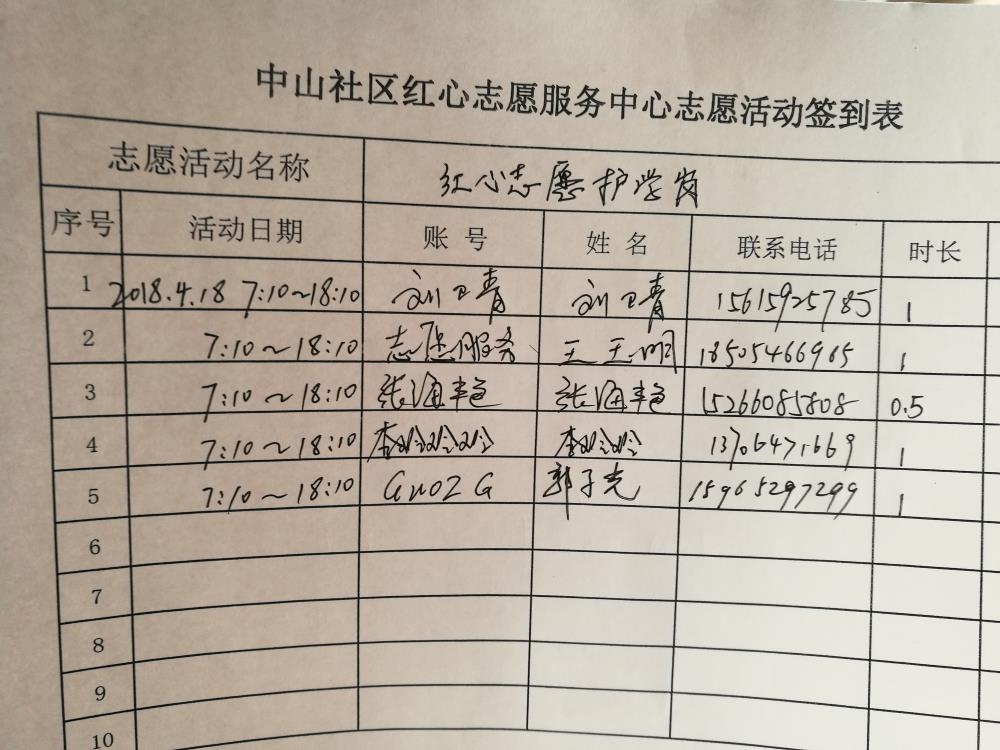 中山社区红心志愿服务中心志愿活动签到表
志愿活动名称 红心志愿护学岗
序号 活动日期 账号 姓名 联系电话 时长
1 2018.4.18 7:10~18:10 刘卫青 刘卫青 15615925785 1
2 7:10~18:10 志愿服务 王玉明 18505466965 1
3 7:10~18:10 张海艳 张海艳 15266085808 0.5
4 7:10~18:10 李玲玲玲 李玲玲 13706471669 1
5 7:10~18:10 GuoZG 郭子光 15965297299 1
6
7
8
9
10